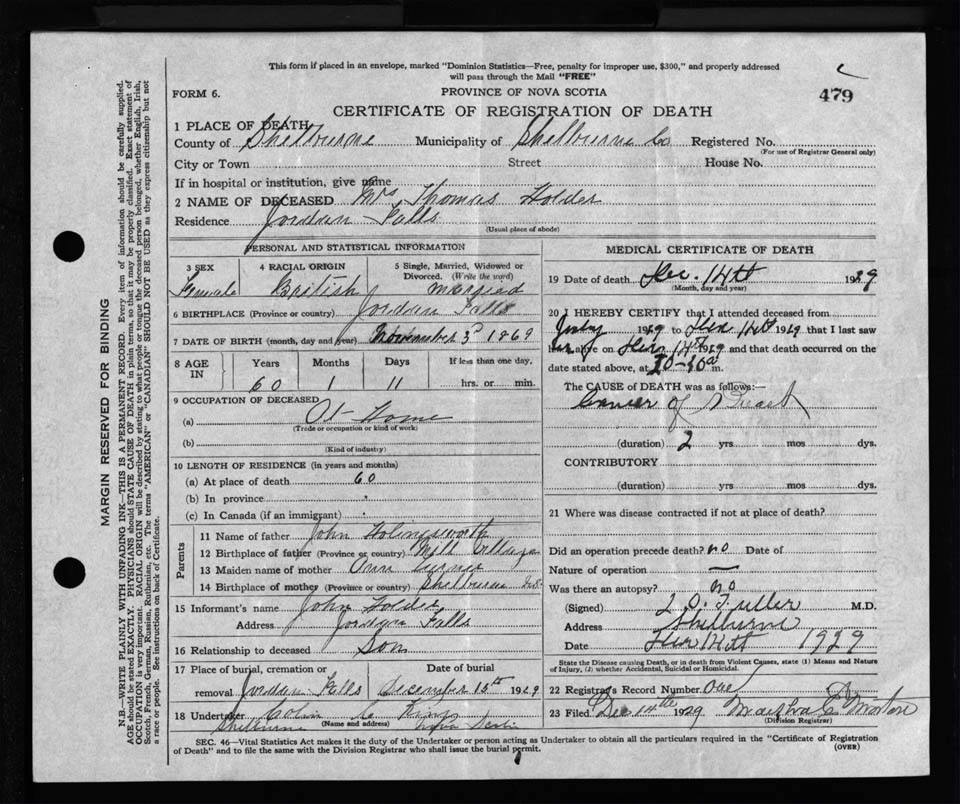 This form if placed in an envelope, marked "Dominion Statistics—Free, penalty for improper use, $300," and properly addressed
will pass through the Mail "FREE"
FORM 6.
PROVINCE OF NOVA SCOTIA
479
CERTIFICATE OF REGISTRATION OF DEATH
1 PLACE OF DEATH
County of Shelburne Municipality of Shelburne Co Registered No.
(For use of Registrar General only)
City or Town Street House No.
If in hospital or institution, give name
2 NAME OF DECEASED Mrs Thomas Holder
Residence Jordan Falls
(Usual place of abode)
PERSONAL AND STATISTICAL INFORMATION
3 SEX 4 RACIAL ORIGIN 5 Single, Married, Widowed or
Divorced. (Write the word)
Female British Married
6 BIRTHPLACE (Province or country) Jordan Falls
7 DATE OF BIRTH (month, day and year) November 3rd 1869
8 AGE IN Years Months Days If less than one day,
60 1 11 hrs. or min.
9 OCCUPATION OF DECEASED
(a) At Home
(Trade or occupation or kind of work)
(b)
(Kind of industry)
10 LENGTH OF RESIDENCE (in years and months)
(a) At place of death 60
(b) In province
(c) In Canada (if an immigrant)
Parents
11 Name of father John Holingsworth
12 Birthplace of father (Province or country) Mill Village
13 Maiden name of mother Ann
14 Birthplace of mother (Province or country) Shelburne
15 Informant's name John Holder
Address Jordan Falls
16 Relationship to deceased Son
17 Place of burial, cremation or Date of burial
removal Jordan Falls December 15th 1929
18 Undertaker Colin
(Name and address)
Shelburne Nova Scotia
MEDICAL CERTIFICATE OF DEATH
19 Date of death Dec. 14th 1929
(Month, day and year)
20 I HEREBY CERTIFY that I attended deceased from
July 1929 to Dec 14th 1929 that I last saw
her alive on Dec 14th 1929 and that death occurred on the
date stated above, at 10-10 a m.
The CAUSE of DEATH was as follows:—
Cancer of Breast
(duration) 2 yrs mos dys.
CONTRIBUTORY
(duration) yrs mos dys.
21 Where was disease contracted if not at place of death?
Did an operation precede death? no Date of
Nature of operation —
Was there an autopsy? no
(Signed) L. O. Fuller M.D.
Address Shelburne
Date Dec 14th 1929
State the Disease causing Death, or in death from Violent Causes, state (1) Means and Nature
of Injury, (2) whether Accidental, Suicidal or Homicidal.
22 Registrar's Record Number One
23 Filed Dec 14th 1929 Martha E Morton
(Division Registrar)
SEC. 46—Vital Statistics Act makes it the duty of the Undertaker or person acting as Undertaker to obtain all the particulars required in the "Certificate of Registration
of Death" and to file the same with the Division Registrar who shall issue the burial permit.
(OVER)
MARGIN RESERVED FOR BINDING
N.B.—WRITE PLAINLY WITH UNFADING INK—THIS IS A PERMANENT RECORD. Every item of information should be carefully supplied.
AGE should be stated EXACTLY. PHYSICIANS should STATE CAUSE OF DEATH in plain terms, so that it may be properly classified. Exact statement of
OCCUPATION is very important. RACIAL ORIGIN will be described by stating to what people or tongue the deceased person belonged, whether English, Irish,
Scotch, French, German, Russian, Ruthenian, etc. The terms "AMERICAN" or "CANADIAN" SHOULD NOT BE USED as they express citizenship but not
a race or people. See instructions on back of Certificate.